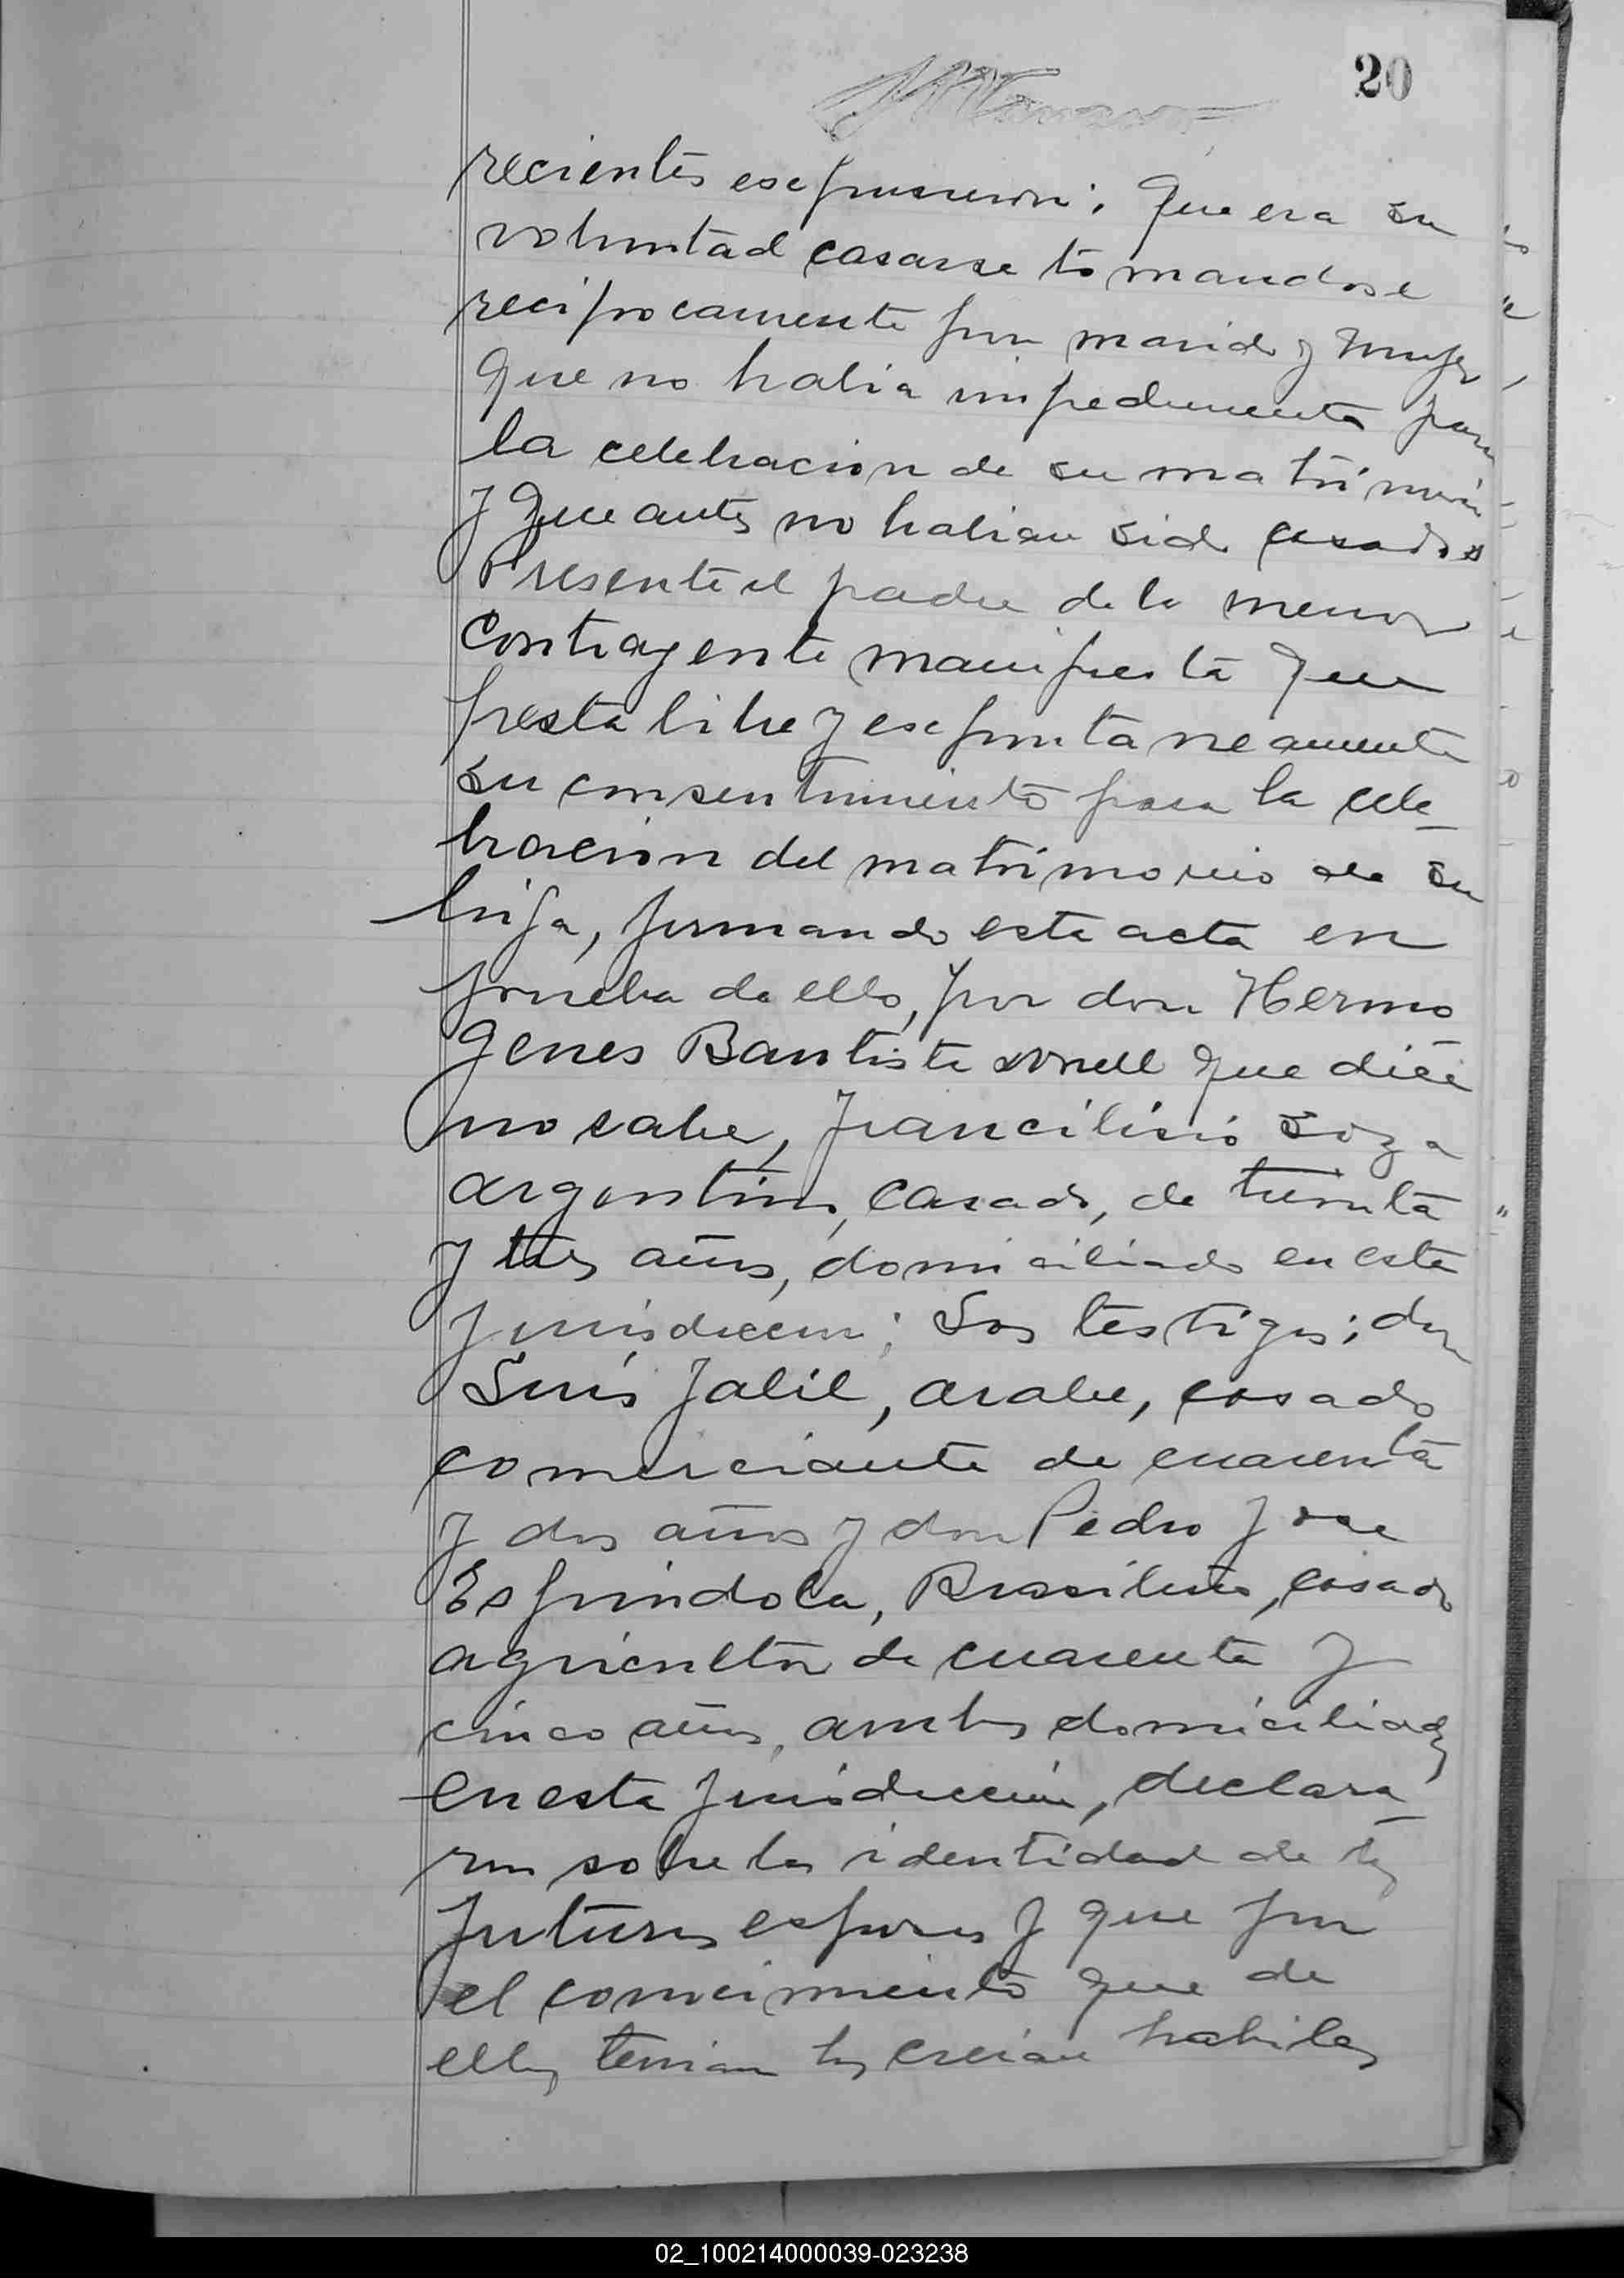 20
recientes
que era su
voluntad casarse tomandose
reciprocamente por marido y mujer
que no habia impedimento para
la celebracion de su matrimonio
y que antes no habian sido casados
Presente el padre de la menor
contrayente manifiesta que
presta libre y espontaneamente
su consentimiento para la cele-
bracion del matrimonio de su
hija, firmando esta acta en
prueba de ello, por don Hermo
genes Bautista que dice
no sabe, Francilisio Soza
argentino, casado, de treinta
y tres años, domiciliado en esta
jurisdiccion; Los testigos; don
Luis Jalil, arabe, casado
comerciante de cuarenta
y dos años y don Pedro Jose
Espindola, Brasilero, casado
agricultor de cuarenta y
cinco años, ambos domiciliados
en esta jurisdiccion, declara-
ron sobre la identidad de los
futuros esposos y que por
el conocimiento que de
ellos tenian los creian habiles
02_100214000039-023238